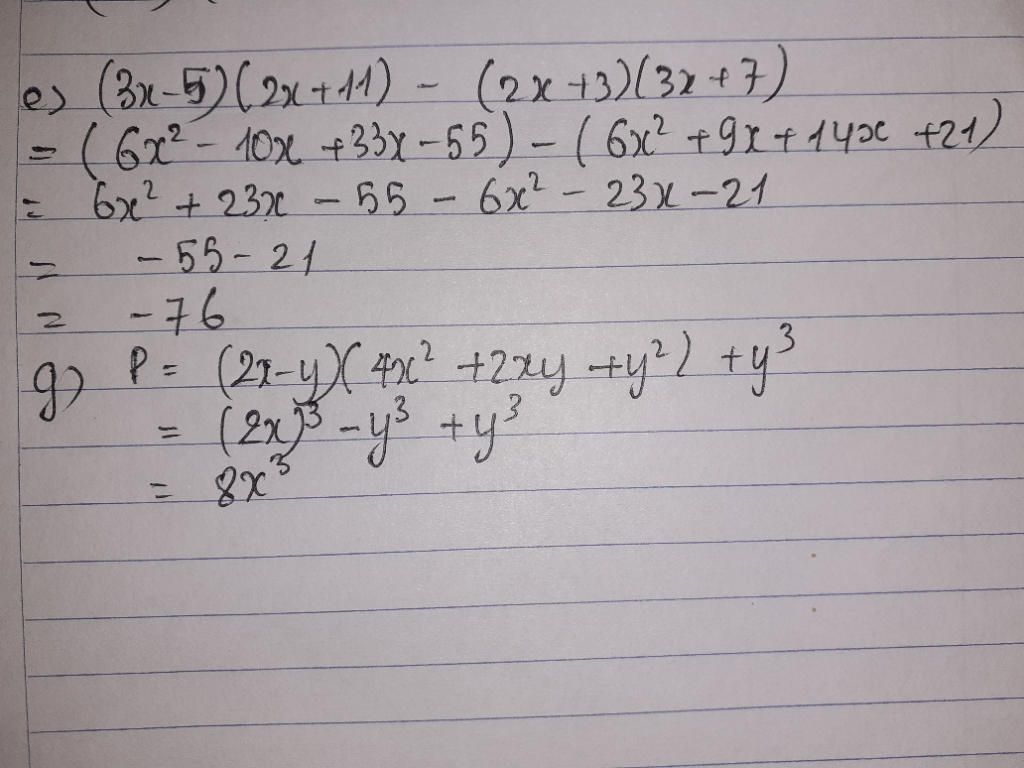 e) (3x-5)(2x+11) - (2x+3)(3x+7)
= (6x² - 10x +33x - 55) - (6x² +9x + 14x +21)
= 6x² + 23x - 55 - 6x² - 23x - 21
= -55-21
= -76
g) P = (2x-y)(4x² +2xy +y²) +y³
= (2x)³ - y³ + y³
= 8x³